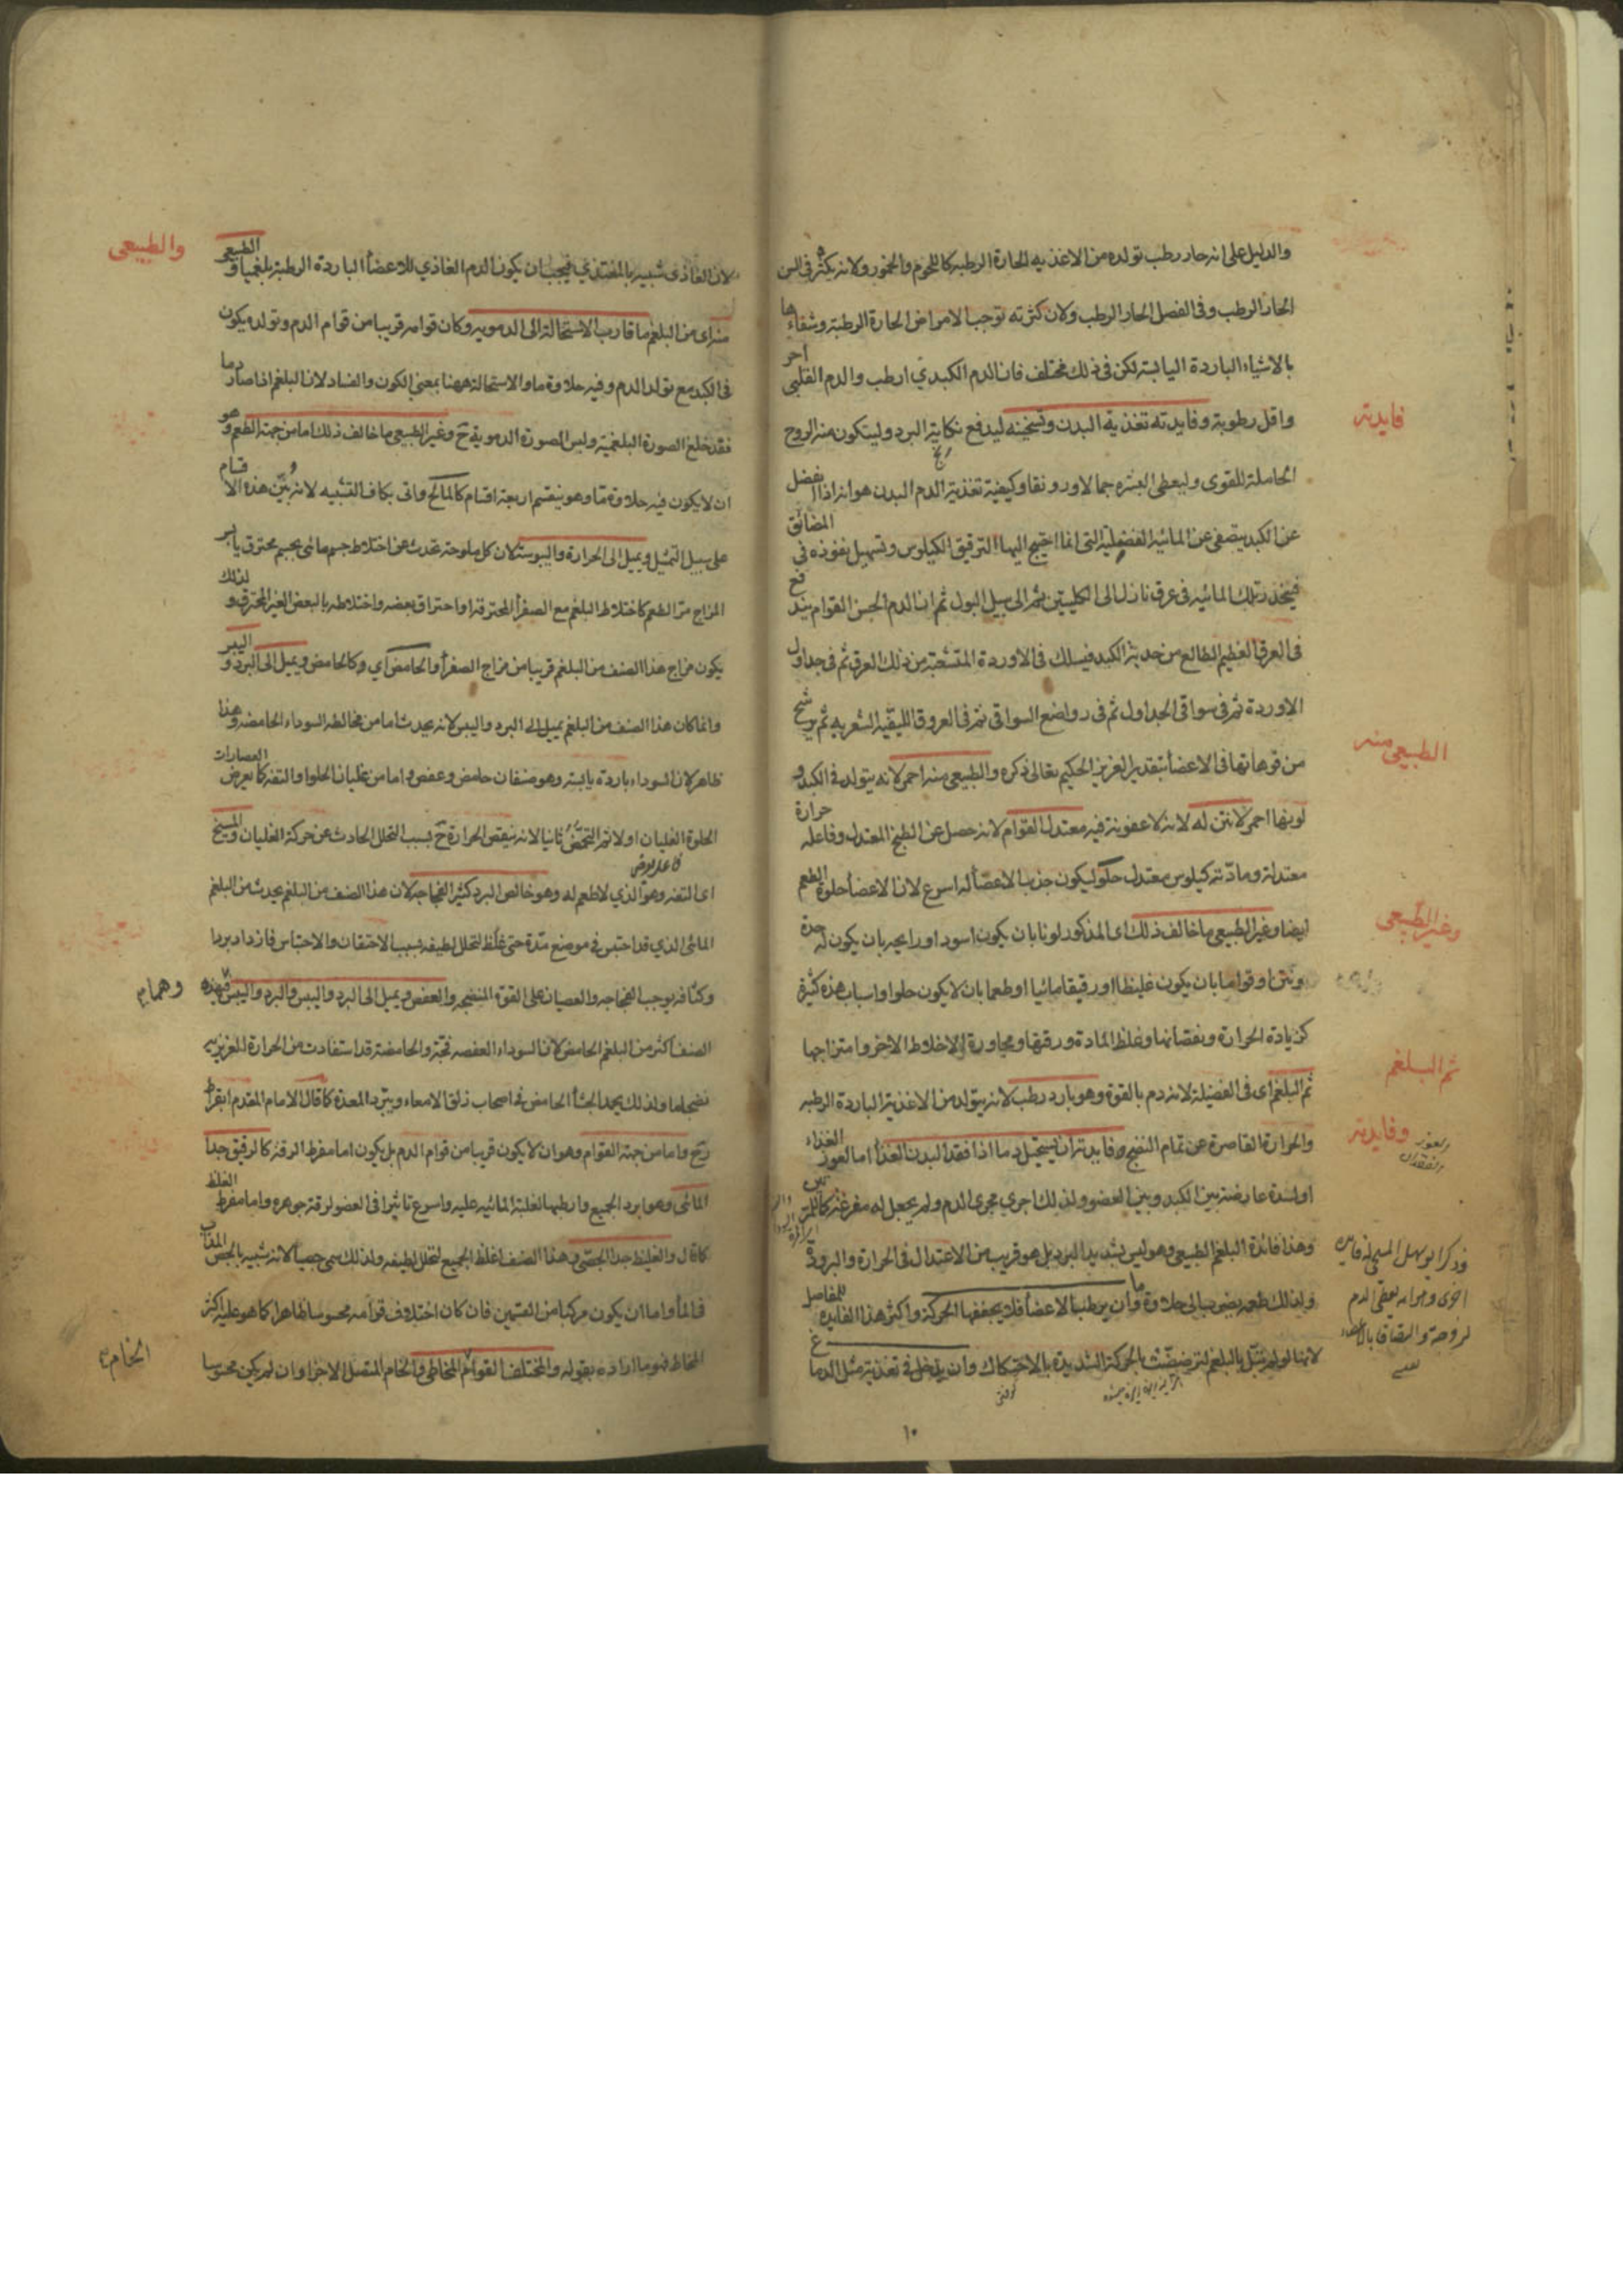 والدليل على انه حار رطب تولده من الاغذيه الحارة الرطبه كاللحوم والخمور ولانه يكثر فى السن
الحار الرطب وفى الفصل الحار الرطب ولان كثرته توجب الامراض الحارة الرطبة وشفاءها
بالاشياء الباردة اليابسة لكن فى ذلك مختلف فان الدم الكبدي ارطب والدم القلبى احر
واقل رطوبة وفايدته تغذية البدن وتسخينه ليدفع نكاية البرد وليتكون منه الروح
فايدته
الحاملة للقوى وليعطى البشره جمالا ورونقا وكيفية تغذية الدم البدن هو انه اذا انفصل
عن الكبد يتصفى عن المائيه الفضلية التى انما احتيج اليها لترقيق الكيلوس وتسهيل نفوذه فى المضائق
فينجذب تلك المائيه فى عرق نازل الى الكليتين ثم الى سبيل البول ثم ان الدم الحسن القوام يندفع
فى العرق العظيم الطالع من حدبة الكبد فيسلك فى الاوردة المتشعبة من ذلك العرق ثم فى جداول
الاوردة ثم فى سواقى الجداول ثم فى رواضع السواقى ثم فى العروق الليفية الشعريه ثم يرشح
من فوهاتها فى الاعضأ بتقدير العزيز الحكيم تعالى ذكره والطبيعى منه احمر لانه يتولد فى الكبد و
الطبيعى منه
لونها احمر لا نتن له لانه لا عفونة فيه معتدل القوام لانه حصل عن الطبخ المعتدل وفاعله حرارة
معتدلة ومادته كيلوس معتدل حلو ليكون جذب الاعضأ له اسرع لان الاعضأ حلوة الطعم
ايضا وغير الطبيعى ما خالف ذلك اى المذكور لونا بان يكون اسود او رايحه بان يكون له حدة
وغير الطبيعى
ونتن او قواما بان يكون غليظا او رقيقا مائيا او طعما بان لا يكون حلوا واسباب هذه كثيرة
كزيادة الحرارة ونقصانها وغلظ المادة ورقتها ومجاورة الاخلاط الاخر وامتزاجها
ثم البلغم اى فى الفضيلة لانه دم بالقوة وهو بارد رطب لانه يتولد من الاغذية الباردة الرطبه
ثم البلغم
والحرارة القاصرة عن تمام النضج وفايدته ان يستحيل دما اذا فقد البدن الغذأ اما لعوز الغذاء
وفايدته
او لسدة عارضة بين الكبد وبين العضو ولذلك اجرى مجرى الدم ولم يجعل له مفرغة كالمرتين
وهذا فائدة البلغم الطبيعى وهو ليس بشديد البرد بل هو قريب من الاعتدال فى الحرارة والبرودة
ولذلك طعمه يضرب الى حلاوة ما وان يرطب الاعضأ فلا يجففها الحركة واكثر هذا الفايده للمفاصل
لانها لو لم تبتل بالبلغم لترضضت بالحركة الشديدة بالاحتكاك وان يدخل فى تغذية مثل الدماغ
وذكر ابو سهل المسيحى له فايده
اخرى وهو انه يعطى الدم
لزوجة والتصاقا بالاعضاء
١٠
لان الغاذى شبيه بالمغتذي فيجب ان يكون الدم الغاذي للاعضأ الباردة الرطبة بلغميا والطبيعى
والطبيعى
منه اى من البلغم ما قارب الاستحالة الى الدمويه وكان قوامه قريبا من قوام الدم وتولده يكون
فى الكبد مع تولد الدم وفيه حلاوة ما والاستحالة ههنا بمعنى الكون والفساد لان البلغم اذا صار دما
فقد خلع الصورة البلغمية ولبس الصورة الدموية ح وغير الطبيعى ما خالف ذلك اما من جهة الطعم وهو
ان لا يكون فيه حلاوة ما وهو ينقسم اربعة اقسام كالمالح واتى بكاف التشبيه لانه بين هذه الاقسام
على سبيل التمثيل ويميل الى الحرارة واليبوسة لان كل ملوحة تحدث عن اختلاط جسم مائى بجسم محترق يابس
المزاج مر الطعم كاختلاط البلغم مع الصفرأ المحترقة او احتراق بعضه واختلاطه بالبعض الغير المحترق ولذلك
يكون مزاج هذا الصنف من البلغم قريبا من مزاج الصفرأ والحامض اي وكالحامض ويميل الى البرد واليبس
وانما كان هذا الصنف من البلغم يميل الى البرد واليبس لانه يحدث اما من مخالطه السوداء الحامضه وهذا
ظاهر لان السوداء باردة يابسة وهو صنفان حامض وعفص واما من غليان الحلو او التفه كما يعرض العصارات
الحلوة الغليان اولا ثم التحمض ثانيا لانه ينقص الحرارة ح بسبب التحلل الحادث عن حركة الغليان والمسيخ
اى التفه وهو الذي لا طعم له وهو خالص البرد كثير الفجاجه لان هذا الصنف من البلغم يحدث من البلغم
المائى الذي قد احتبس فى موضع مدة حتى غلظ لتحلل لطيفه بسبب الاحتقان والاحتباس فازداد بردا
وكثافه يوجب الفجاجه والعصيان على القوة المنضجه والعفص ويميل الى البرد واليبس والبرد واليبس فى هذه
الصنف اكثر من البلغم الحامض لان السوداء العفصه فجة والحامضة قد استفادت من الحرارة الغريزيه
نضجا ما ولذلك يحمد الجشأ الحامض فى اصحاب زلق الامعاء وتبرد المعدة كما قال الامام المقدم ابقراط
ح واما من جهة القوام وهو ان لا يكون قريبا من قوام الدم بل يكون اما مفرط الرقة كالرقيق جدا
المائى وهو ابرد الجميع وارطبها لغلبة المائيه عليه واسرع تأثيرا فى العضو لرقة جوهره واما مفرط الغلظ
كما قال والغليظ جدا الجصى وهذا الصنف اغلظ الجميع لتحلل لطيفه ولذلك سمى جصيا لانه شبيه بالجص المذاب
فى المأ واما ان يكون مركبا من القسمين فان كان اختلاف قوامه محسوسا ظاهرا كما هو عليه اكثر
المخاط فهو ما اراده بقوله والمختلف القوام المخاطى والخام المتصل الاجزا وان لم يكن محسوسا
الخام